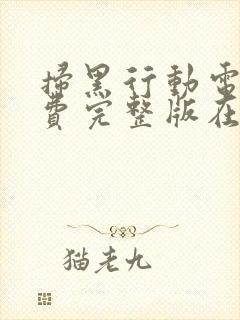 掃黑行動電
費完整版在
猫老九